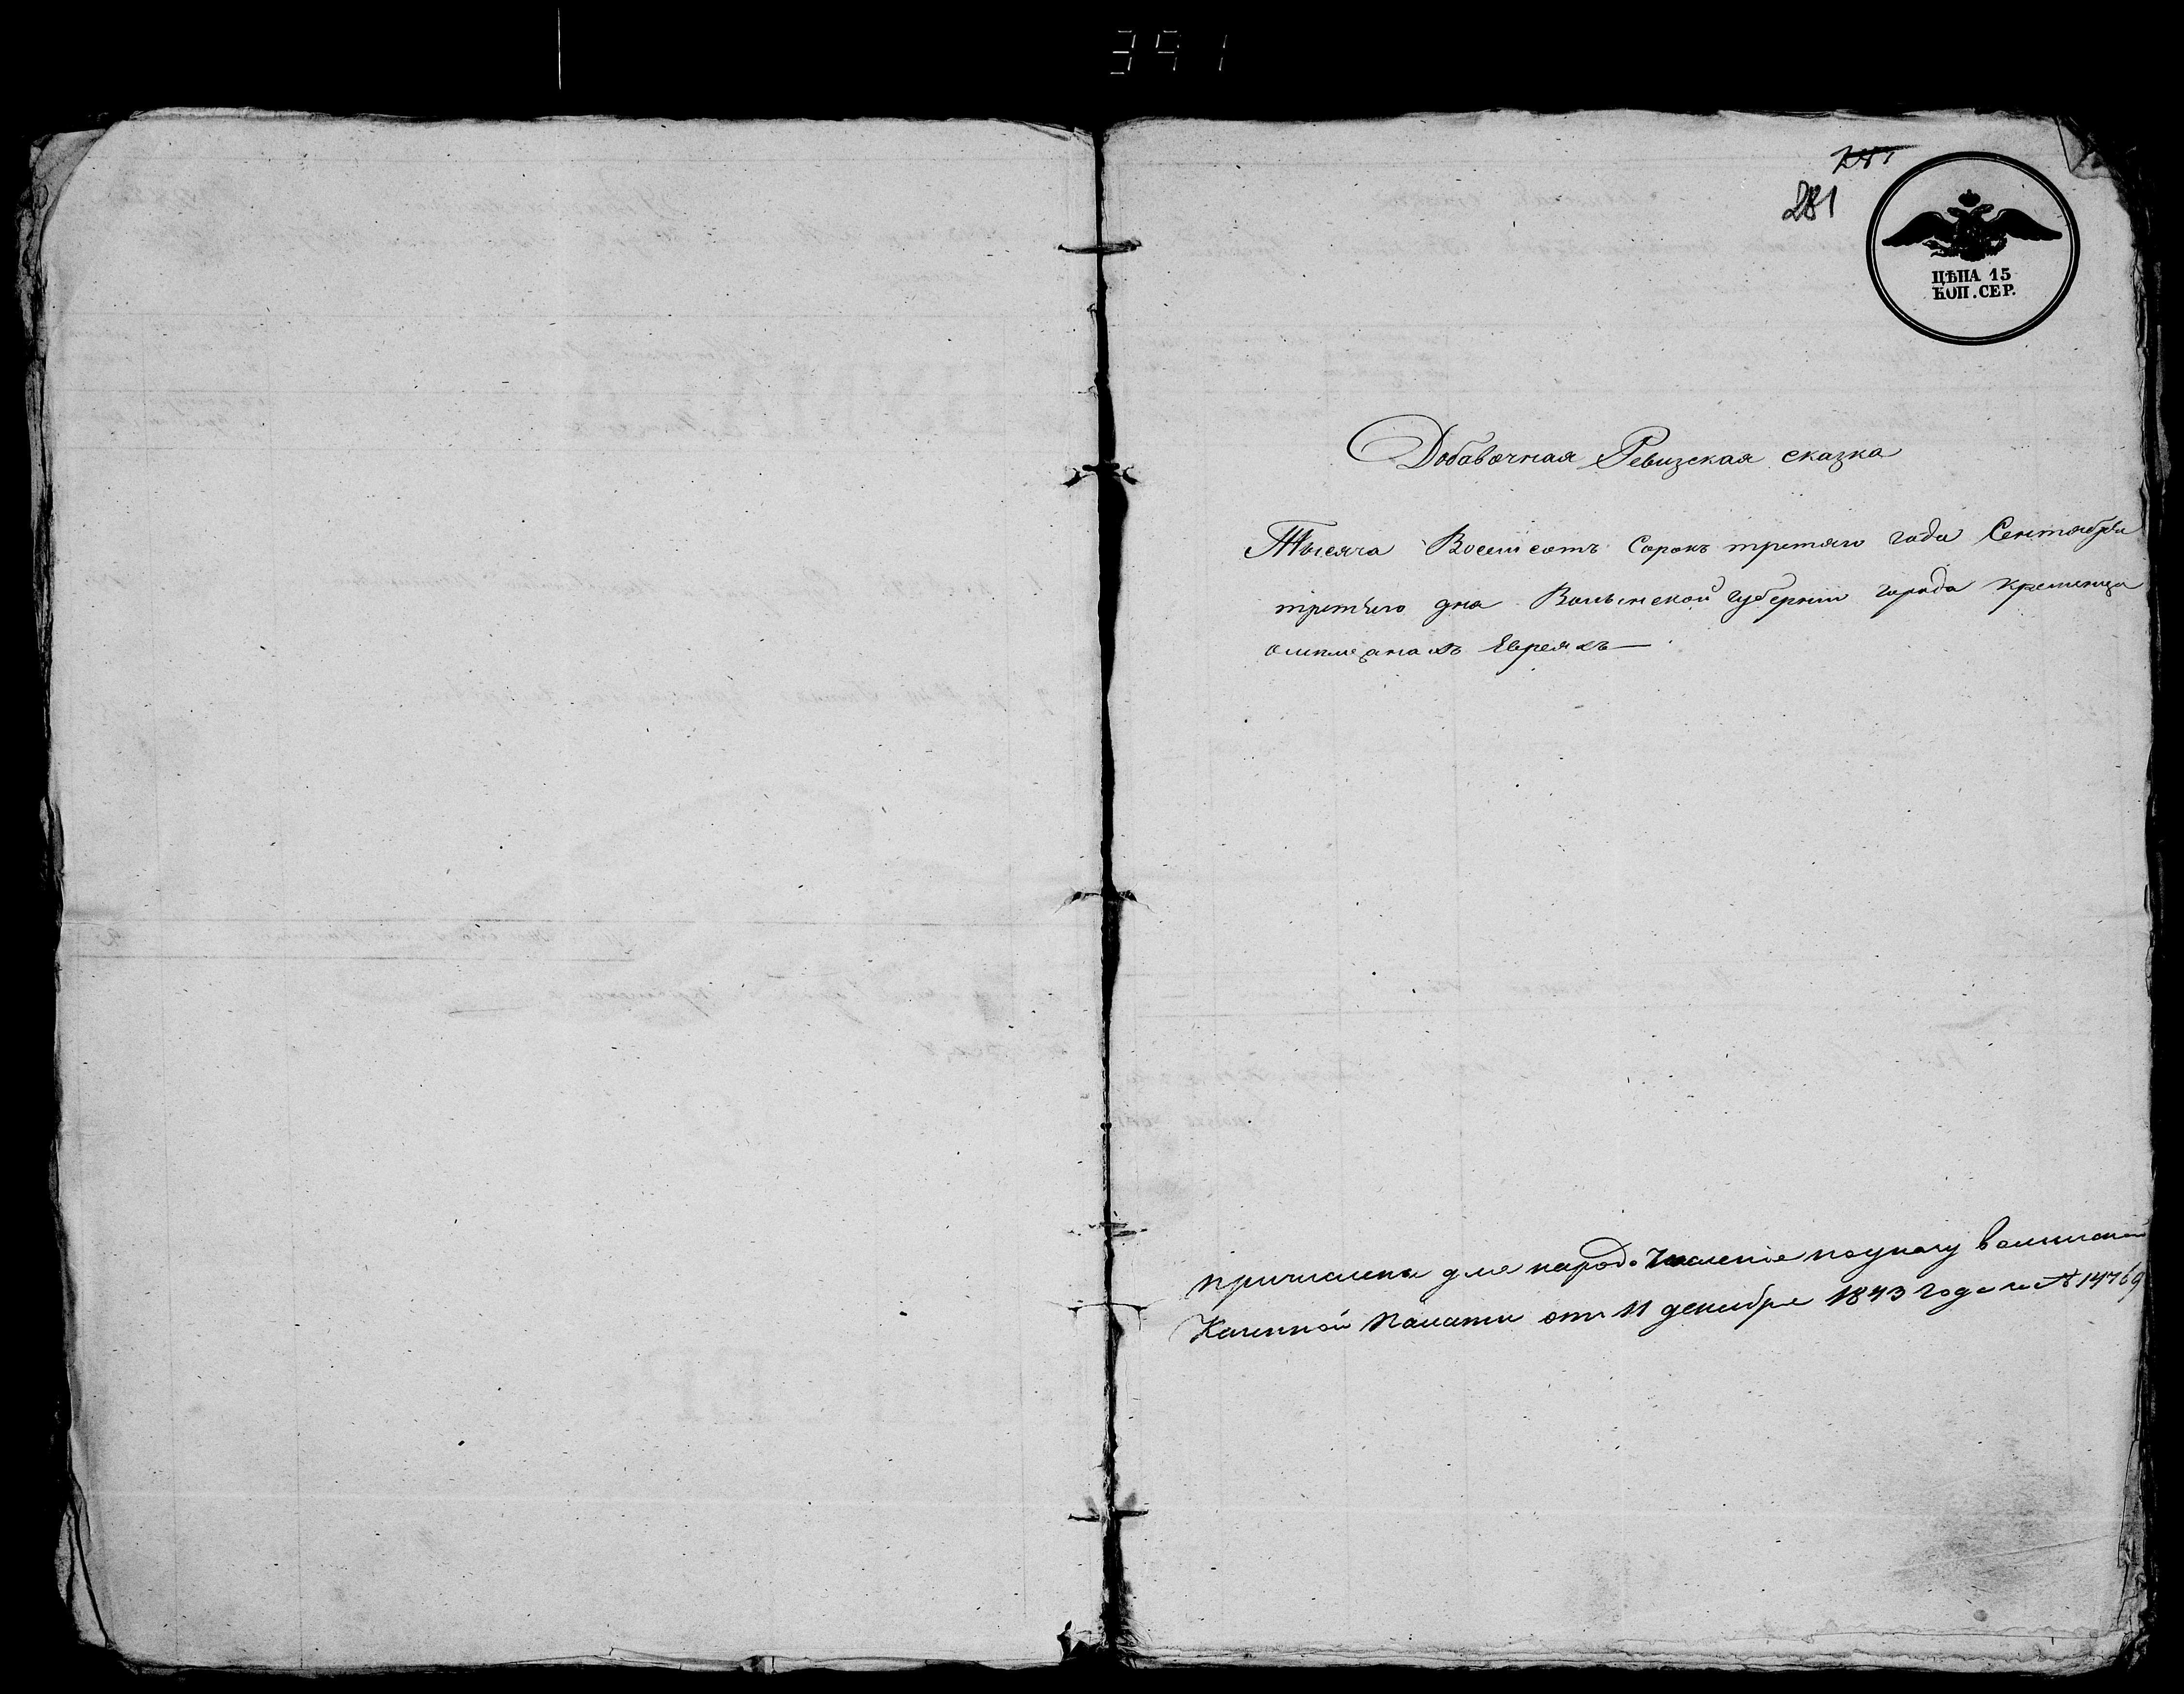 391
281
ЦѢНА 15
КОП. СЕР.
Добавочная Ревизская сказка
Тысяча Восемсотъ Сорокъ третяго года Сентября
третьяго дня Волынской губернии города Кременца
омещанахъ Евреяхъ
причислены для народо Числения поуказу волынской
Казенной Палаты отъ 11 декабря 1843 года за № 14769